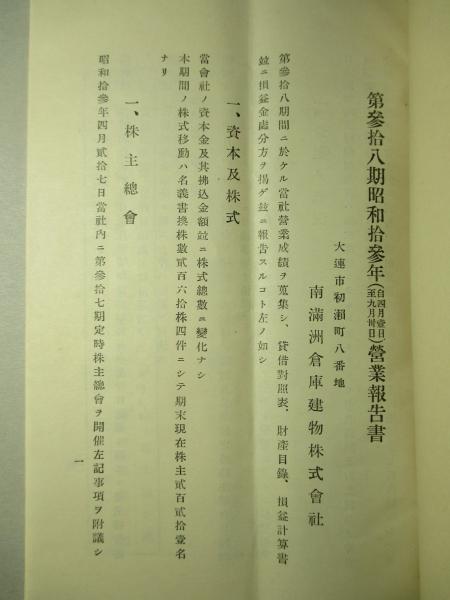 第參拾八期昭和拾參年(自四月壹日至九月卅日)營業報告書
大連市初瀨町八番地
南滿洲倉庫建物株式會社
第參拾八期間ニ於ケル當社營業成績ヲ蒐集シ、貸借對照表、財產目錄、損益計算書
竝ニ損益金處分方ヲ揭ゲ玆ニ報吿スルコト左ノ如シ
一、資本及株式
當會社ノ資本金及其拂込金額竝ニ株式總數ニ變化ナシ
本期間ノ株式移動ハ名義書換株數貳百六拾株四件ニシテ期末現在株主貳百貳拾壹名
ナリ
一、株主總會
昭和拾參年四月貳拾七日當社內ニ第參拾七期定時株主總會ヲ開催左記事項ヲ附議シ
一